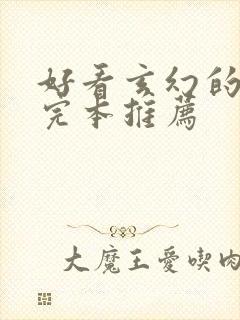 好看玄幻的
完本推薦
大魔王愛喫肉